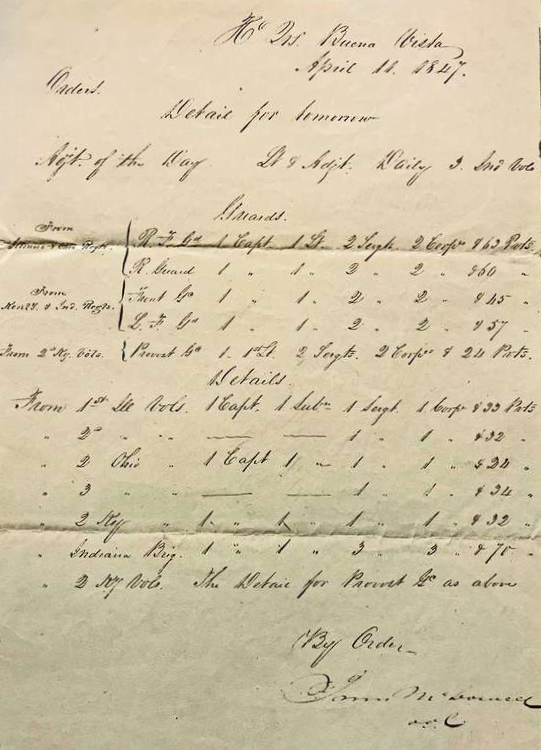 Hd Qrs. Buena Vista
April 11. 1847.
Orders.
Detail for tomorrow
Adjt. of the Day Lt & Adjt. Daily 3. Ind Vols
Guards.
From
Illinois & Regts. R. F. Gd 1 Capt. 1 Lt. 2 Sergts 2 Corpls & 63 Prvts.
R. Guard 1 " 1 " 2 " 2 " & 60 "
From
Kenty. & Ind. Regts. Front Gd 1 " 1 " 2 " 2 " & 45 "
L. F. Gd 1 " 1 " 2 " 2 " & 57 "
From 2d Ky. Vols. Provost Gd 1. 1st Lt. 2 Sergts. 2 Corpls & 24 Prvts.
Details.
From 1st Ill Vols. 1 Capt. 1 Subn 1 Sergt. 1 Corpl & 33 Prvts
" 2d " " — — 1 " 1 " & 32 "
" 2 Ohio " 1 Capt 1 " 1 " 1 " & 24 "
" 3 " " — — 1 " 1 " & 34 "
" 2 Ky " 1 " 1 " 1 " 1 " & 32 "
" Indiana Brig. 1 " 1 " 3 " 3 " & 70 "
" 2 Ky Vols. The Detail for Provost Gd as above
By Order
McDowell